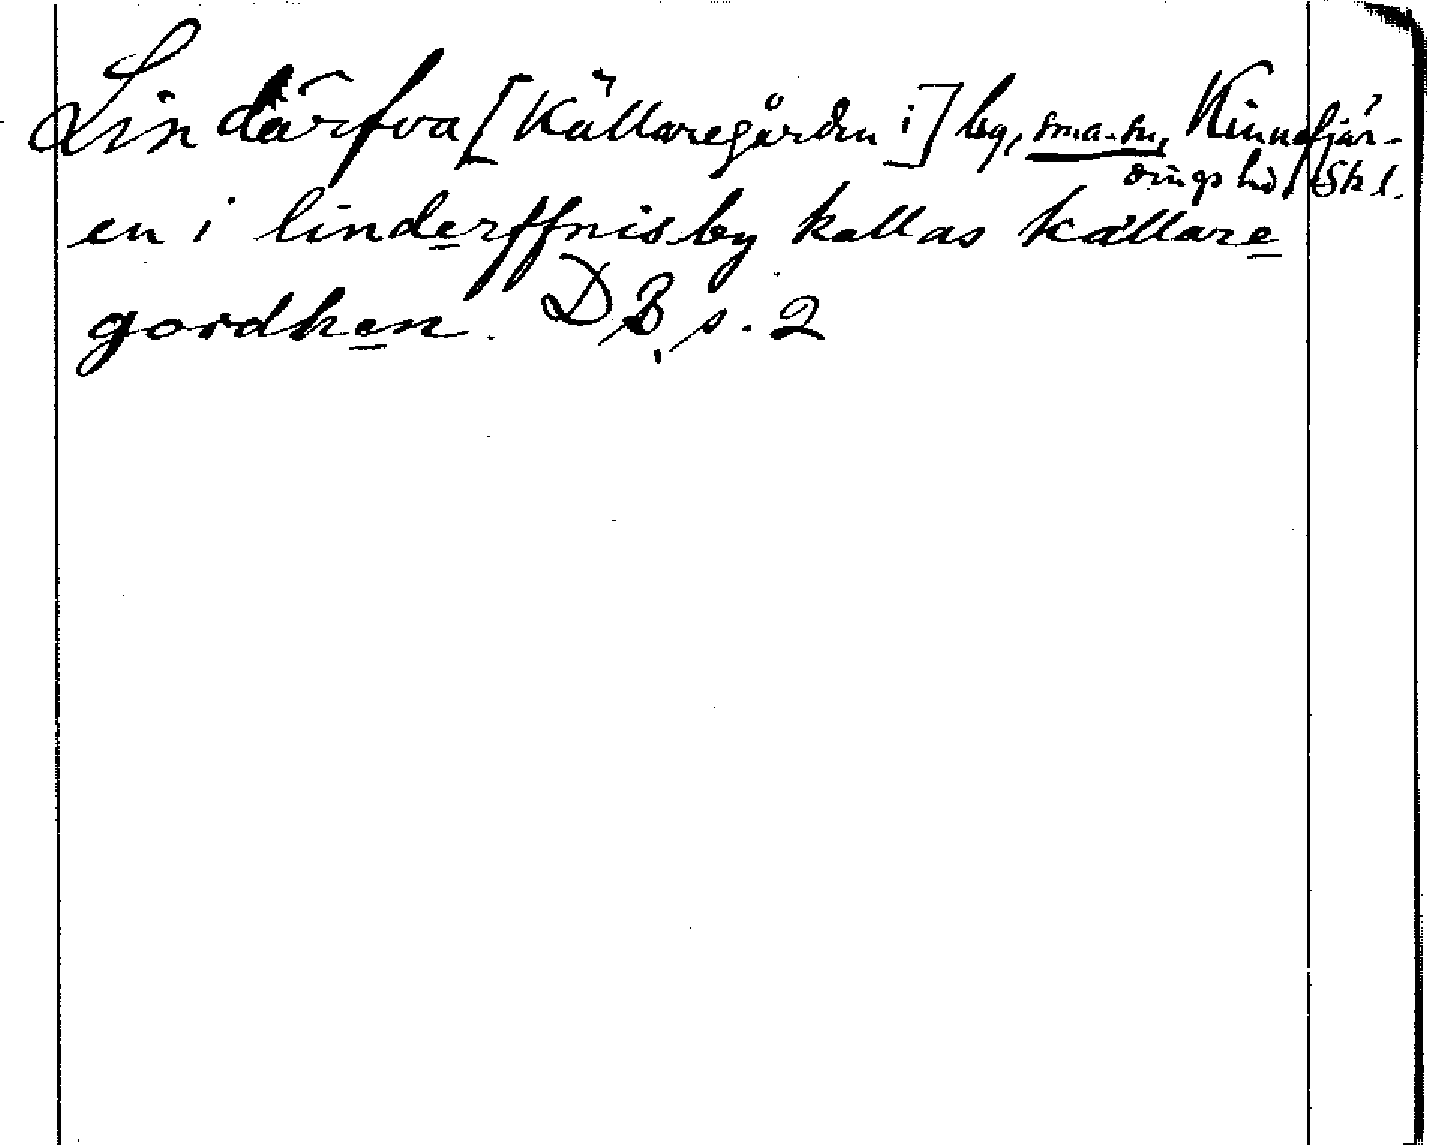 Lindärfva [Källaregården i] by, sma-sn, Kinnefjär-
dings hd, Sk l.
en i linderffnisby kallas källare
gordhen. DB, s. 2